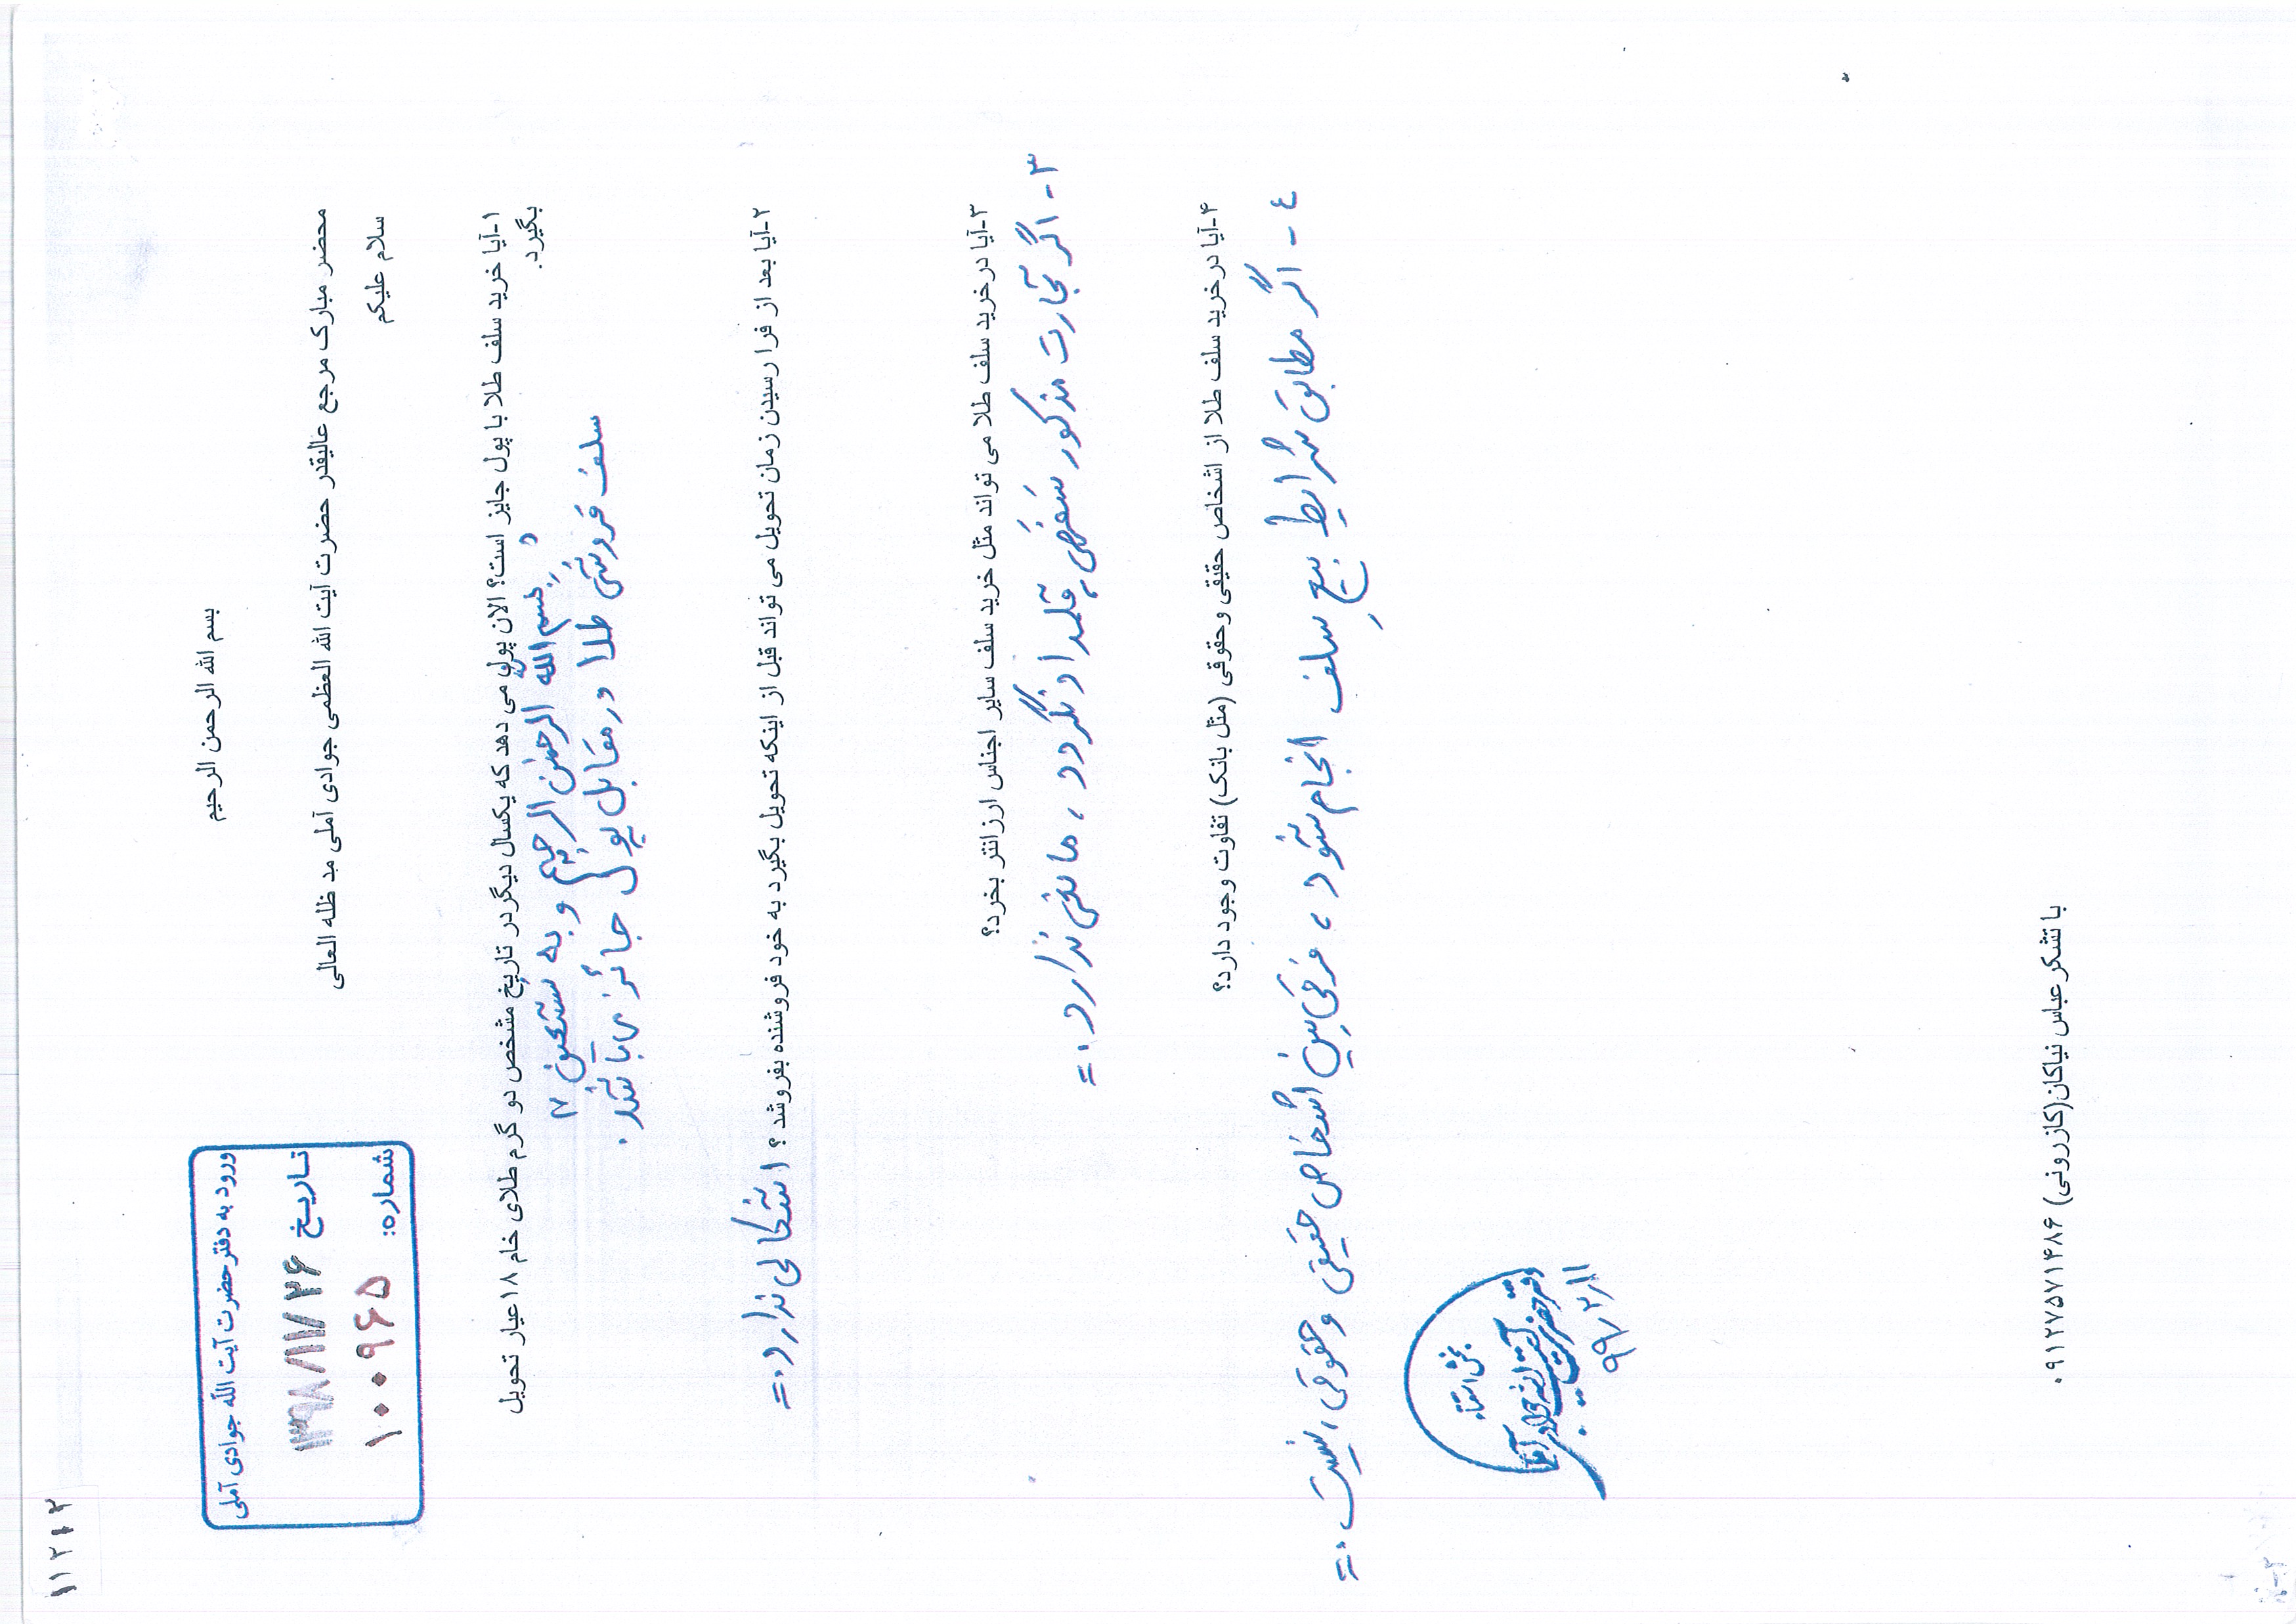 ۱۱۲۱۲
ورود به دفتر حضرت آیت الله جوادی آملی
تاریخ ۱۳۹۸/۱۱/۲۶
شماره: ۱۰۰۹۶۵
بسم الله الرحمن الرحیم
محضر مبارک مرجع عالیقدر حضرت آیت الله العظمی جوادی آملی مد ظله العالی
سلام علیکم
۱-آیا خرید سلف طلا با پول جایز است؟ الان پولی می دهد که یکسال دیگر در تاریخ مشخص دو گرم طلای خام ۱۸ عیار تحویل
بگیرد.
بسم الله الرحمن الرحیم و به نستعین
سلف فروشی طلا در مقابل پول جائز می باشد.
۲-آیا بعد از فرا رسیدن زمان تحویل می تواند قبل از اینکه تحویل بگیرد به خود فروشنده بفروشد ؟ اشکالی ندارد.=
۳-آیا در خرید سلف طلا می تواند مثل خرید سلف سایر اجناس ارزانتر بخرد؟
۳- اگر تجارت مذکور سَفَهی قلمداد نگردد، مانعی ندارد.=
۴-آیا در خرید سلف طلا از اشخاص حقیقی وحقوقی (مثل بانک) تفاوت وجود دارد؟
٤- اگر مطابق شرایط بیع سلف انجام شود، فرقی بین اشخاص حقیقی و حقوقی، نیست.=
بخش استفتاء
دفتر حضرت آیت الله جوادی آملی
۹۹/۲/۱۱
با تشکر عباس نیاکان(کازرونی) ۰۹۱۲۷۵۷۱۴۸۶